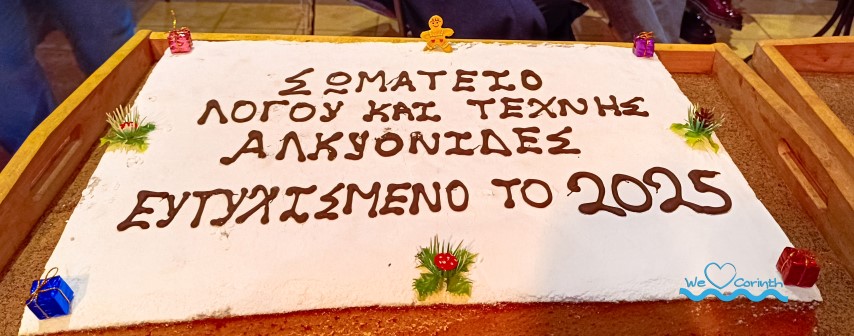 ΣΩΜΑΤΕΙΟ
ΛΟΓΟΥ ΚΑΙ ΤΕΧΝΗΣ
ΑΛΚΥΟΝΙΔΕΣ
ΕΥΤΥΧΙΣΜΕΝΟ ΤΟ 2025
We Corinth